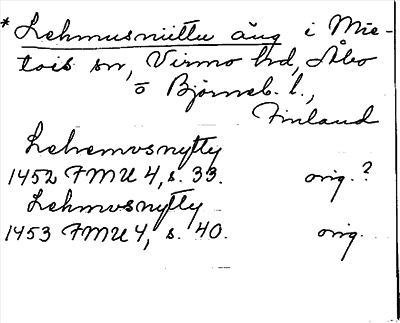 * Lehmusniittu äng i Mie-
tois sn, Virmo hd, Åbo
o Björneb. l.,
Finland
Lehemosnytty
1452 FMU 4, s. 33. orig.?
Lehmosnytty
1453 FMU 4, s. 40. orig.